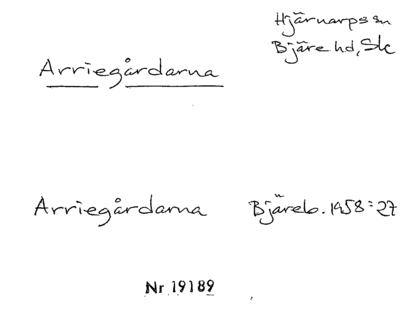 Hjärnarps sn
Bjäre hd, Sk
Arriegårdarna
Arriegårdarna Bjäreb. 1958:27
Nr 19189